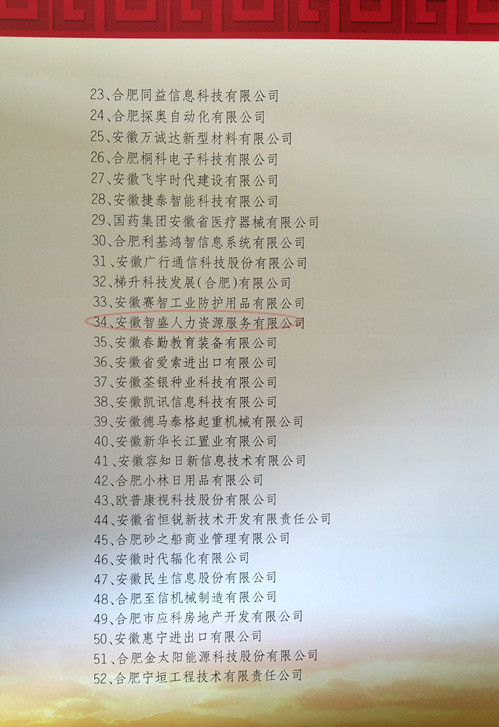 23、合肥同益信息科技有限公司
24、合肥探奥自动化有限公司
25、安徽万诚达新型材料有限公司
26、合肥桐科电子科技有限公司
27、安徽飞宇时代建设有限公司
28、安徽捷泰智能科技有限公司
29、国药集团安徽省医疗器械有限公司
30、合肥利基鸿智信息系统有限公司
31、安徽广行通信科技股份有限公司
32、梯升科技发展(合肥)有限公司
33、安徽赛智工业防护用品有限公司
34、安徽智盛人力资源服务有限公司
35、安徽春勤教育装备有限公司
36、安徽省爱索进出口有限公司
37、安徽荃银种业科技有限公司
38、安徽凯讯信息科技有限公司
39、安徽德马泰格起重机械有限公司
40、安徽新华长江置业有限公司
41、安徽容知日新信息技术有限公司
42、合肥小林日用品有限公司
43、欧普康视科技股份有限公司
44、安徽省恒锐新技术开发有限责任公司
45、合肥砂之船商业管理有限公司
46、安徽时代辐化有限公司
47、安徽民生信息股份有限公司
48、合肥至信机械制造有限公司
49、合肥市应科房地产开发有限公司
50、安徽惠宁进出口有限公司
51、合肥金太阳能源科技股份有限公司
52、合肥宁垣工程技术有限责任公司